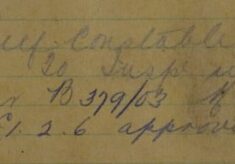 Constable
To Insp
B 379/03
£1.2.6 approv